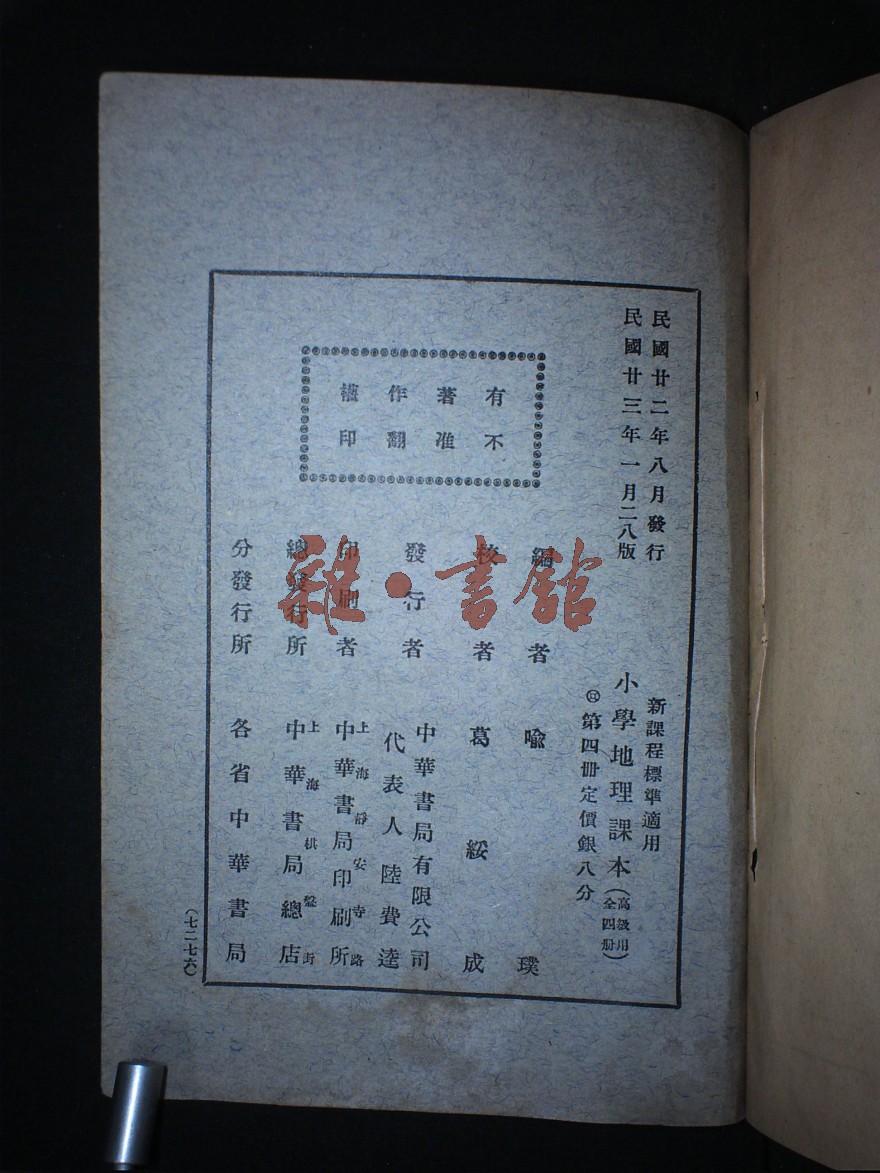 民國廿二年八月發行
民國廿三年一月二八版
新課程標準適用
小學地理課本(高級用全四冊)
第四冊定價銀八分
有著作權
不准翻印
編者 喩璞
校者 葛綏成
發行者 中華書局有限公司
代表人陸費逵
印刷者 上海靜安寺路
中華書局印刷所
總發行所 上海棋盤街
中華書局總店
分發行所 各省中華書局
(七二七六)
雜·書館